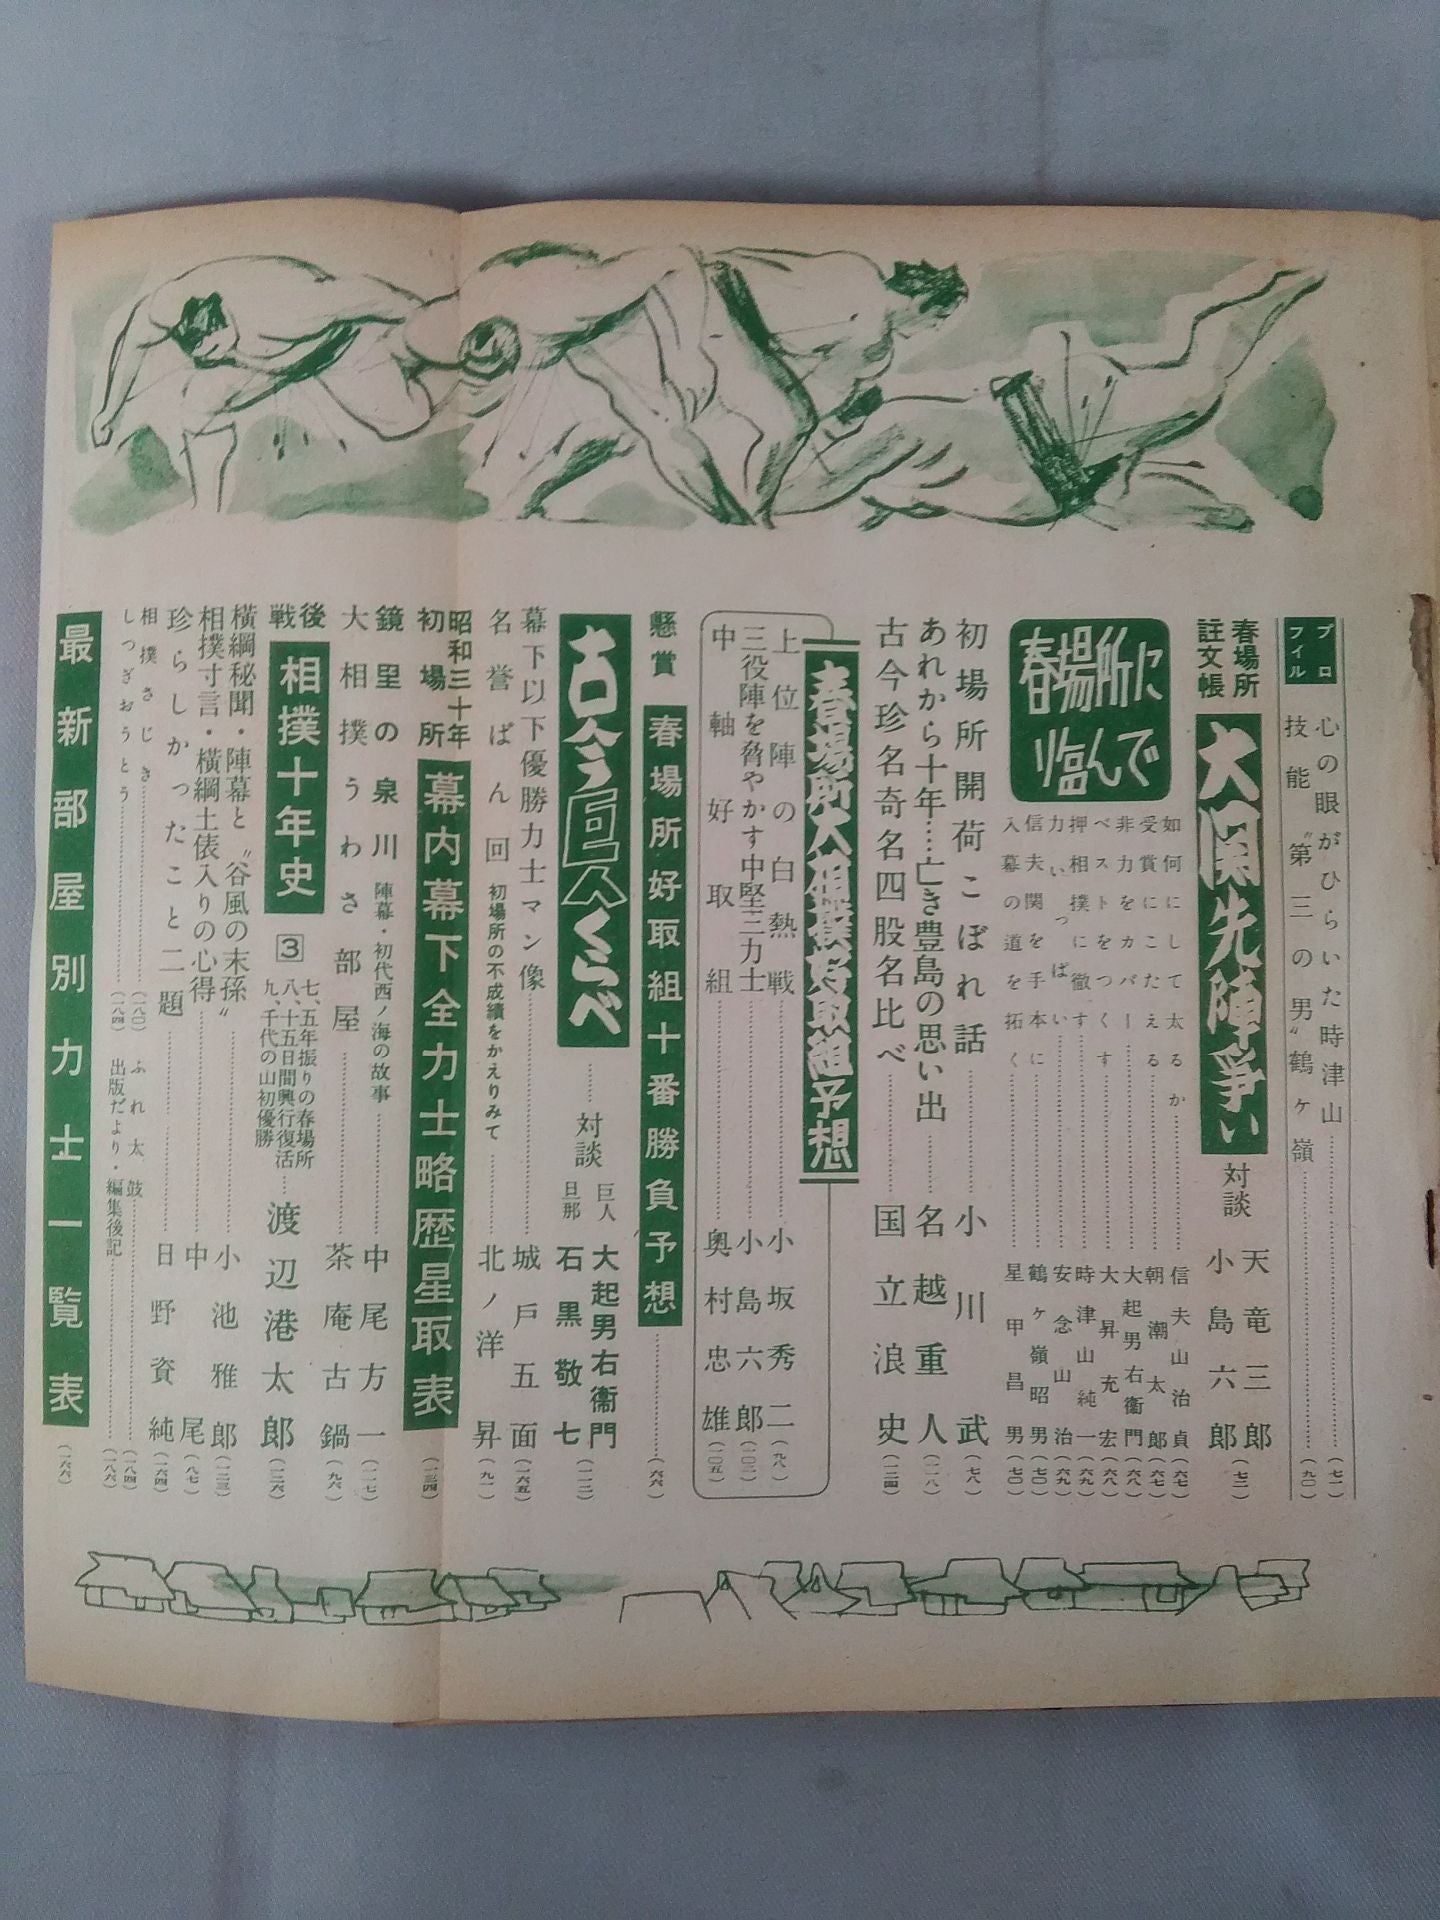 プロフイル
心の眼がひらいた時津山……(七一)
技能“第三の男”鶴ヶ嶺……(九〇)
春場所註文帳
大関先陣争い
対談
天竜三郎
小島六郎(七二)
春場所に臨んで
如何にして太るか……信夫山治貞(六七)
受賞にこたえる……朝潮太郎(六七)
非力をカバー……大起男右衞門(六八)
ベストをつくす……大昇充宏(六八)
押相撲に徹す……時津山純一(六九)
力いっぱい……安念山治(六九)
信夫関を手本に……鶴ヶ嶺昭男(七〇)
入幕の道を拓く……星甲昌男(七〇)
初場所開荷こぼれ話……小川武(七八)
あれから十年…亡き豊島の思い出……名越重人(一一八)
古今珍名奇名四股名比べ……国立浪史(一二四)
春場所大模様好取組予想
上位陣の白熱戦……小坂秀二(九八)
三役陣を脅やかす中堅三力士……小島六郎(一〇二)
中軸好取組……奥村忠雄(一〇五)
懸賞
春場所好取組十番勝負予想……(六六)
古今巨人くらべ
……対談
巨人 大起男右衞門
旦那 石黒敬七(一一二)
幕下以下優勝力士マン像……城戸五面(一六五)
名誉ばん回 初場所の不成績をかえりみて……北ノ洋昇(九一)
昭和三十年初場所
幕内幕下全力士略歴星取表(一三四)
鏡里の泉川 陣幕・初代西ノ海の故事……中尾方一(一一七)
大相撲うわさ部屋……茶庵古鍋(九六)
戦後
相撲十年史
3
七、五年振りの春場所
八、十五日間興行復活
九、千代の山初優勝
…渡辺港太郎(一二六)
横綱秘聞・陣幕と“谷風の末孫”……小池雅郎(一二三)
相撲寸言・横綱土俵入りの心得……中尾(八七)
珍らしかったこと二題……日野資純(一六四)
相撲さじき……(一八〇)
しつぎおうとう……(一八四)
ふれ太鼓……(一八四)
出版だより・編集後記……(一八六)
最新部屋別力士一覧表(一六六)